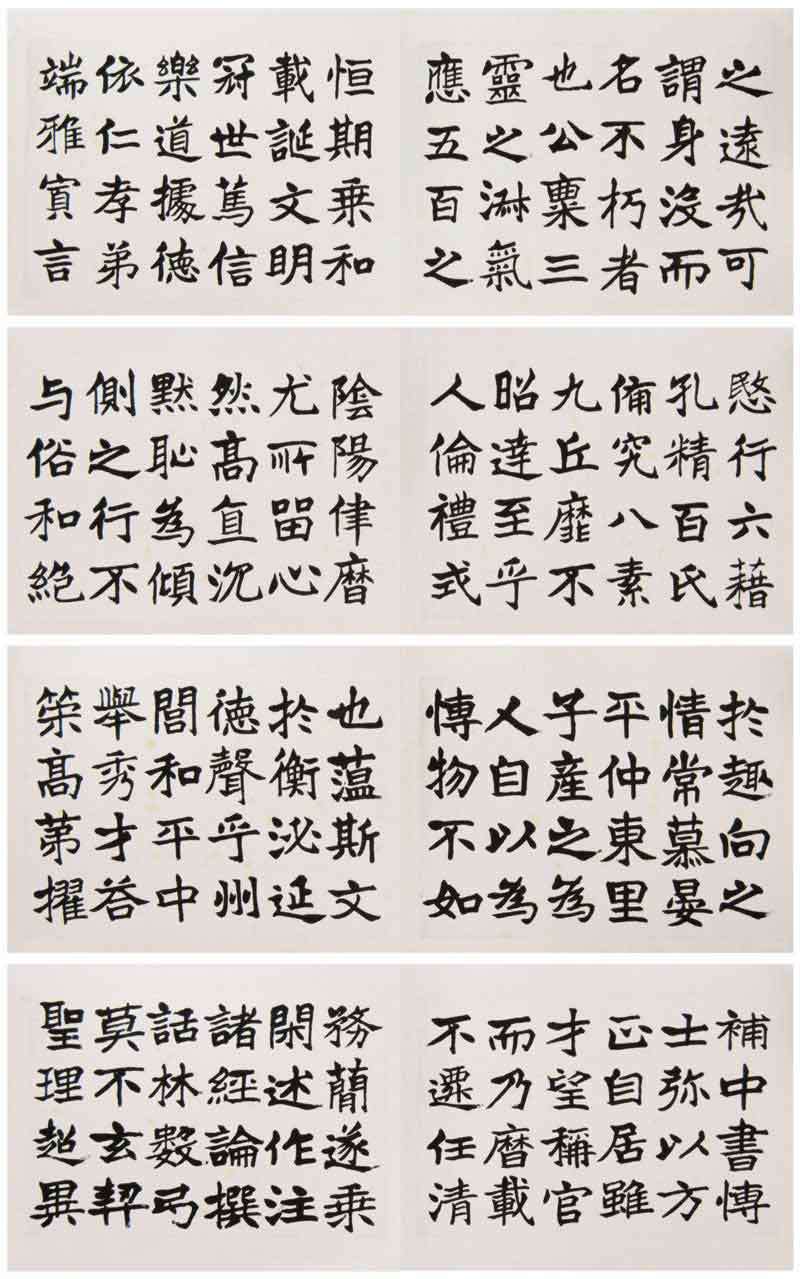 之遠哉可
謂身沒而
名不朽者
也公稟三
靈之淋氣
應五百之
恒期乗和
載誕文明
冠世篤信
樂道據徳
依仁孝弟
端雅寅言
愍行六藉
孔精百氏
俻究八素
九丘靡不
昭達至乎
人倫禮式
陰陽律曆
尤所留心
然髙直沉
默恥為傾
側之行不
与俗和絶
於趣向之
情常慕晏
平仲東里
子産之為
人自以為
博物不如
也薀斯文
於衡泌延
徳聲乎州
閭和平中
舉秀才荅
策髙苐擢
補中書博
士弥以方
正自居雖
才望稱官
而乃曆載
不遷任清
務蕳遂乗
閑述作注
諸經論撰
話林數弓
莫不玄契
聖理超異